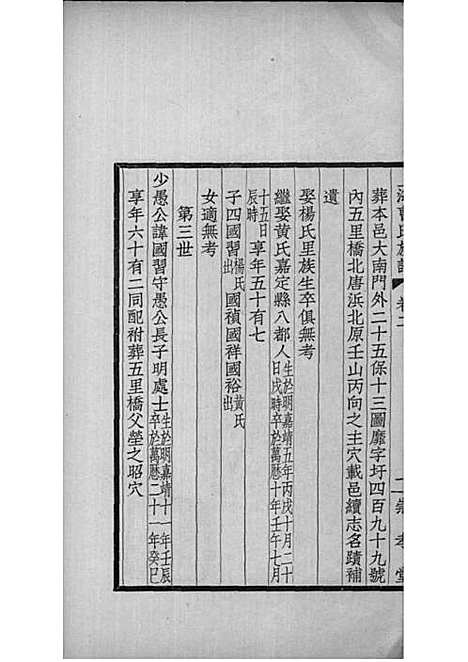 海曹氏族譜 卷二 二 崇孝堂
葬本邑大南門外二十五保十三圖靡字圩四百九十九號
內五里橋北唐浜北原壬山丙向之主穴載邑續志名蹟補
遺
娶楊氏里族生卒俱無考
繼娶黃氏嘉定縣八都人生於明嘉靖五年丙戌十月二十日戌時卒於萬曆十年壬午七月
十五日辰時享年五十有七
子四國習楊氏出國禎國祥國裕黃氏出
女適無考
第三世
少愚公諱國習守愚公長子明處士生於明嘉靖十一年壬辰卒於萬曆二十一年癸巳
享年六十有二同配祔葬五里橋父塋之昭穴